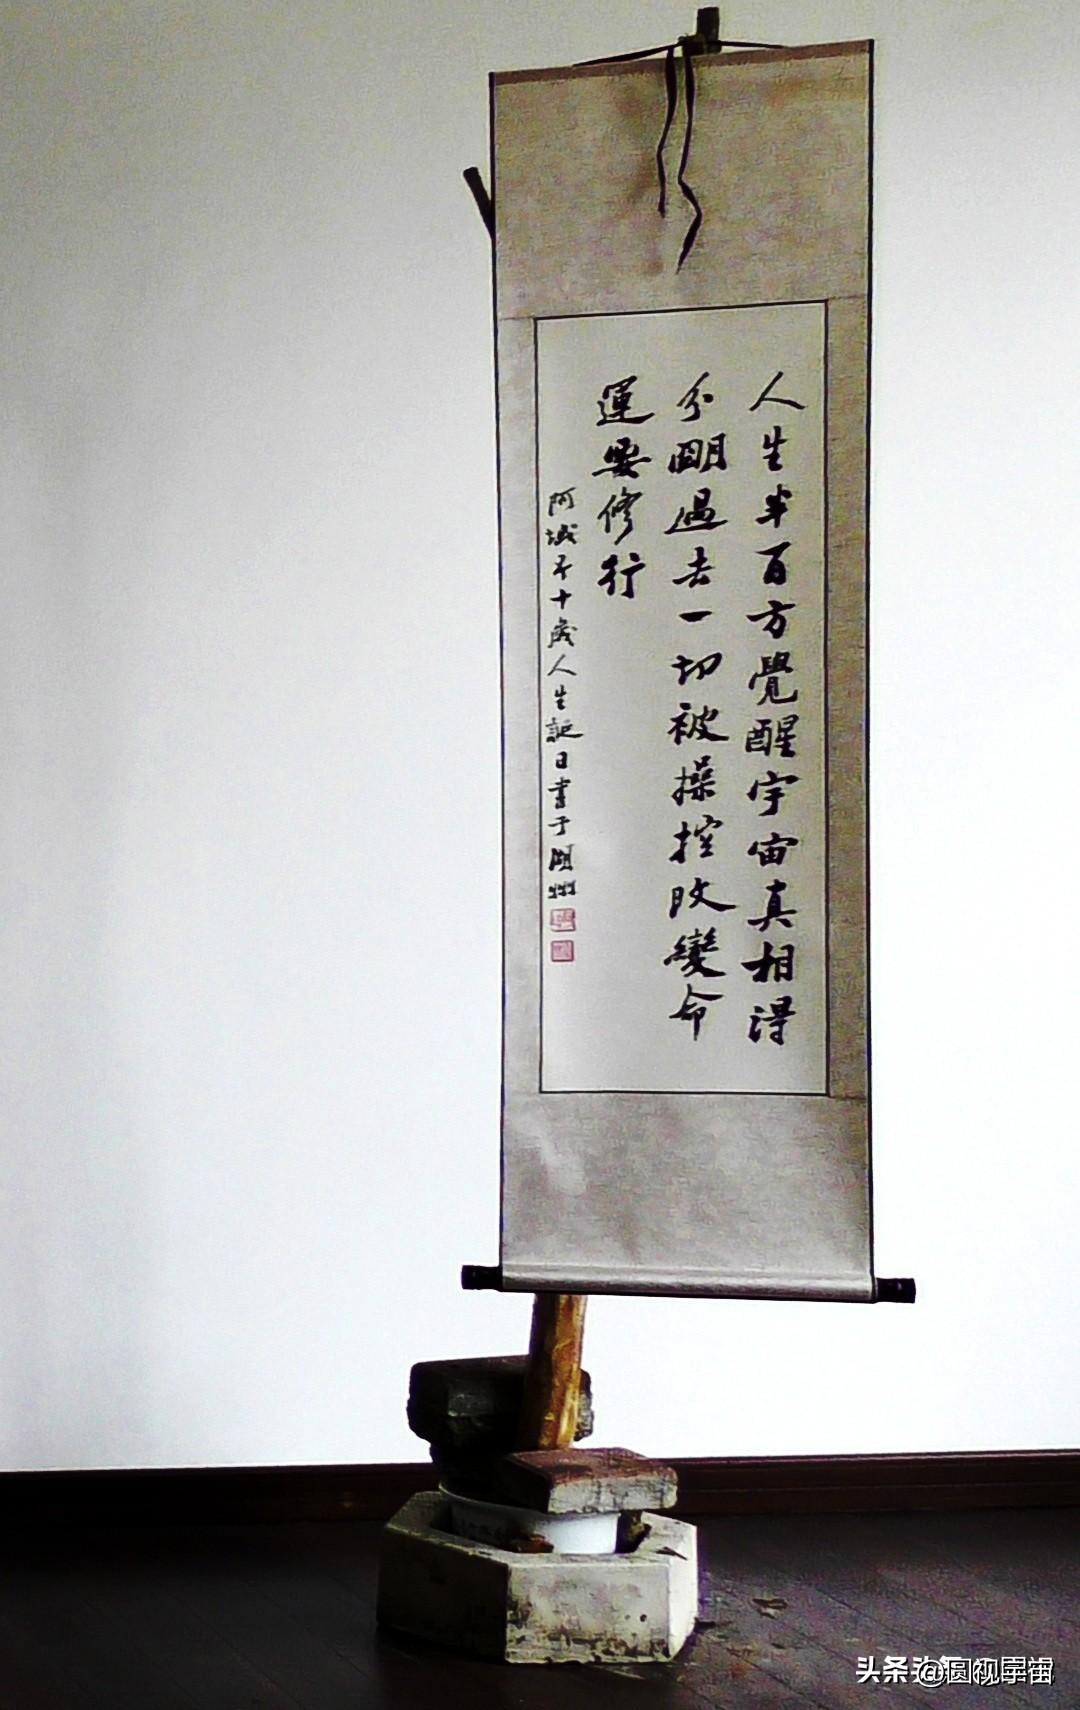 人生半百方覺醒宇宙真相得
分朙過去一切被操控改變命
運要修行
阿城五十歲人生誕日書于湖州
头条 @圆视宇宙